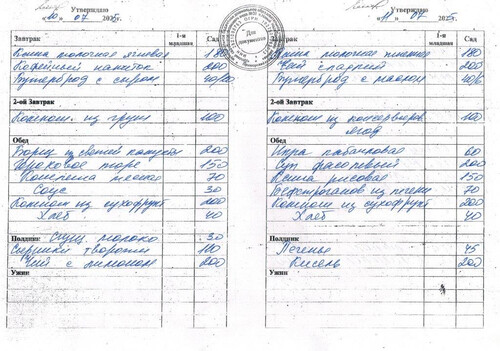 Утверждаю
"10" 07 2025г.
Завтрак
1-я младшая
Сад
Каша молочная ячневая 180
Кофейный напиток 200
Бутерброд с сыром 40/10
2-ой Завтрак
Компот из груш 100
Обед
Борщ из свежей капусты 200
Гороховое пюре 150
Котлета мясная 70
Соус 30
Компот из сухофрукт 200
Хлеб 40
Полдник Сгущ. молоко 30
Сырники творожн 100
Чай с лимоном 200
Ужин
Утверждаю
"11" 07 2025г.
Завтрак
1-я младшая
Сад
Каша молочная пшенная 180
Чай сладкий 200
Бутерброд с маслом 40/6
2-ой Завтрак
Компот из консервиров. ягод 100
Обед
Икра кабачковая 60
Суп фасолевый 200
Каша рисовая 150
Бефстроганов из печени 70
Компот из сухофрукт 200
Хлеб 40
Полдник
Печенье 45
Кисель 200
Ужин
Для документов